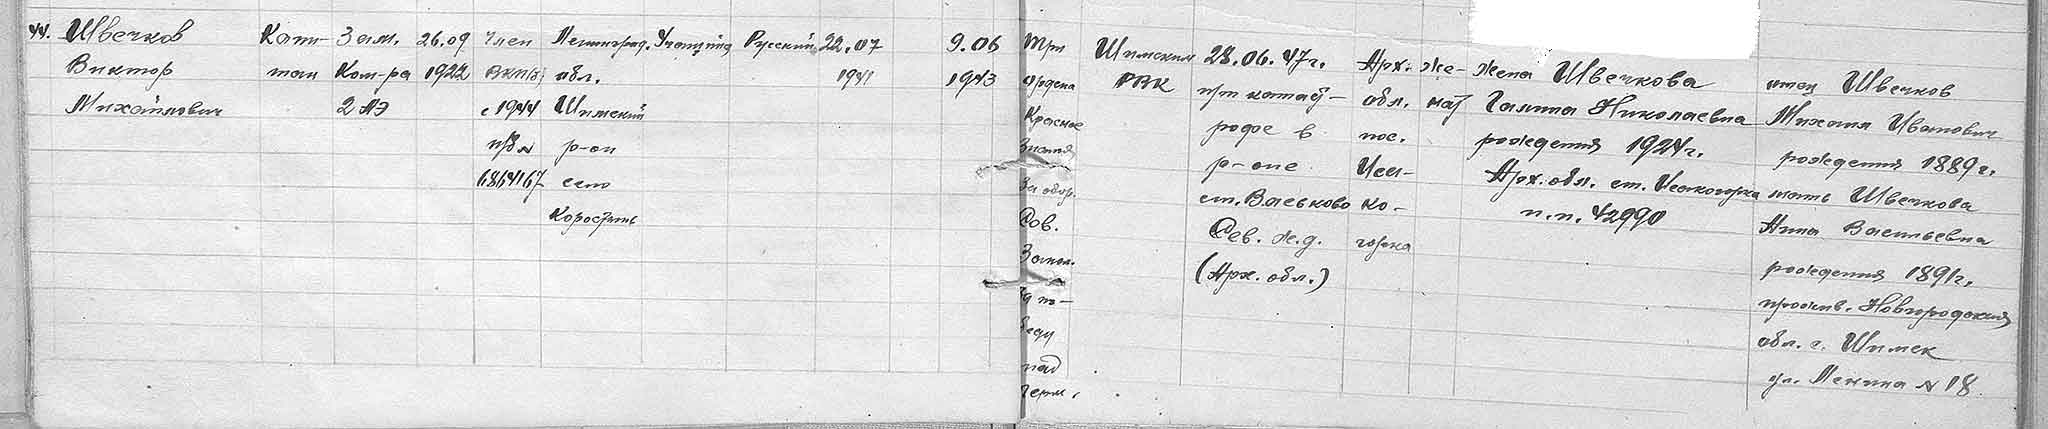 44. Швечков
Виктор
Михайлович
Капи-
тан
Зам.
Ком-ра
2 АЭ
26.09
1922
Член
ВКП(б)
с 1944
п/б №
6864167
Ленинград.
обл.
Шимский
р-он
село
Коростынь
Учащийся
Русский
22.07
1941
9.06
1943
Три
Ордена
Красное
Знамя
За обор.
Сов.
Запол.
За по-
беду
над
Герм.
Шимским
РВК
28.06.47г.
при катаст-
рофе в
р-оне
ст. Васьково
Сев. ж.д.
(Арх. обл.)
Арх.
обл.
пос.
Иса-
ко-
горка
Же-
нат
жена Швечкова
Галина Николаевна
рождения 1924г.
Арх. обл. ст. Исакогорка
п.п. 42990
отец Швечков
Михаил Иванович
рождения 1889г.
мать Швечкова
Анна Васильевна
рождения 1891г.
прожив. Новгородская
обл. г. Шимск
ул. Ленина № 18